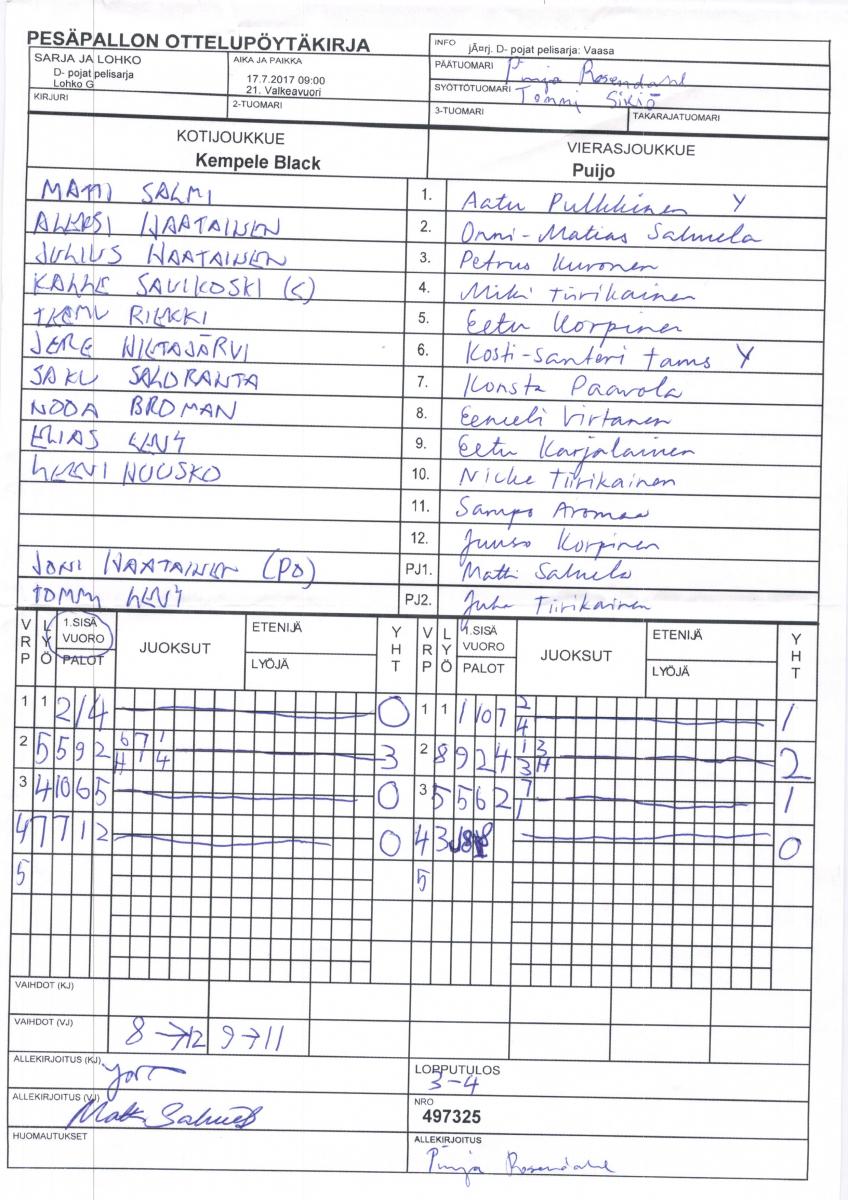 PESÄPALLON OTTELUPÖYTÄKIRJA
INFO jÃ¤rj. D- pojat pelisarja: Vaasa
SARJA JA LOHKO
D- pojat pelisarja
Lohko G
AIKA JA PAIKKA
17.7.2017 09:00
21. Valkeavuori
PÄÄTUOMARI Pinja Rosendahl
SYÖTTÖTUOMARI Tommi Sikiö
KIRJURI
2-TUOMARI
3-TUOMARI
TAKARAJATUOMARI
KOTIJOUKKUE
Kempele Black
VIERASJOUKKUE
Puijo
MATTI SALMI 1. Aatu Pulkkinen Y
ALEKSI HAATAINEN 2. Onni-Matias Salmela
JULIUS HAATAINEN 3. Petrus Kuronen
KALLE SAVIKOSKI (C) 4. Miki Tiirikainen
TEEMU RIEKKI 5. Eetu Korpinen
JERE HIETAJÄRVI 6. Kosti-Santeri Tams Y
SAKU SALORANTA 7. Konsta Paavola
NOOA BROMAN 8. Eemeli Virtanen
ELIAS 9. Eetu Karjalainen
HENRI HUUSKO 10. Nicke Tiirikainen
11. Sampo Aromaa
12. Juuso Korpinen
JONI HAATAINEN (PO) PJ1. Matti Salmela
TOMMY PJ2. Juha Tiirikainen
VRP LYÖ 1.SISÄ VUORO PALOT JUOKSUT ETENIJÄ LYÖJÄ YHT VRP LYÖ 1.SISÄ VUORO PALOT JUOKSUT ETENIJÄ LYÖJÄ YHT
1 1 2/4 0 1 1 1 10 7 2/4 1
2 5 5 9 2 6/H 7/1 1/4 3 2 8 9 2 4 1/3 3/H 2
3 4 10 6 5 0 3 5 5 6 2 7/1 1
4 7 7 1 2 0 4 3 0
5 5
VAIHDOT (KJ)
VAIHDOT (VJ) 8→12 9→11
ALLEKIRJOITUS (KJ)
LOPPUTULOS
3-4
ALLEKIRJOITUS (VJ) Matti Salmela
NRO
497325
HUOMAUTUKSET
ALLEKIRJOITUS
Pinja Rosendahl